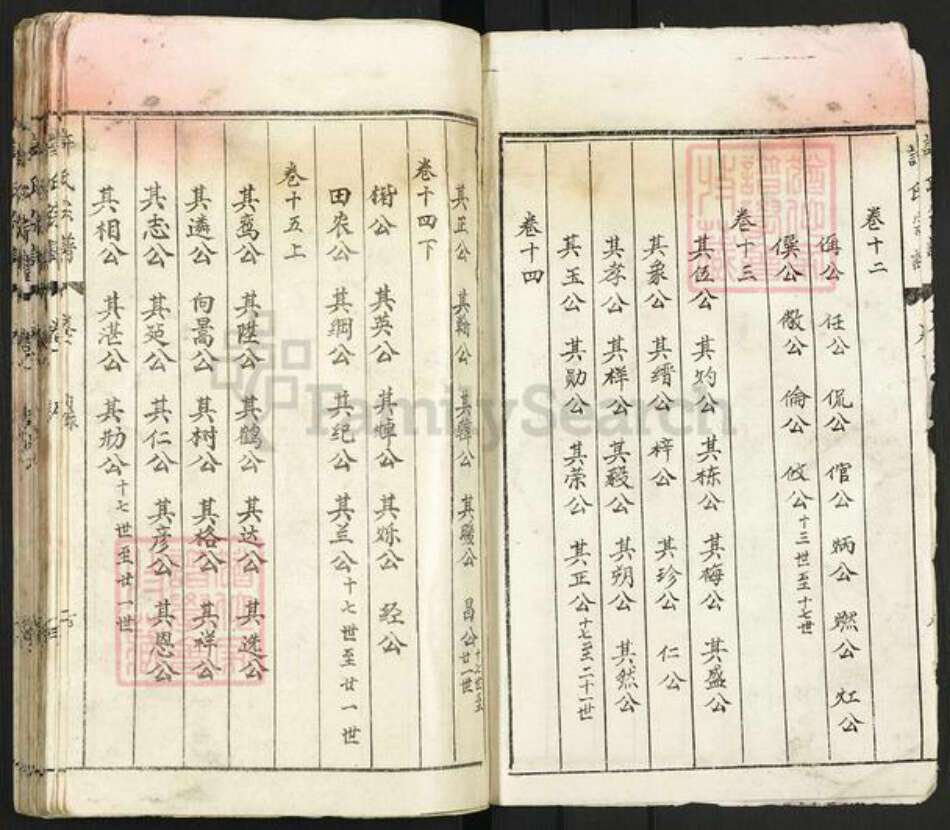 卷十二
偁公 任公 侃公 倌公 炳公 燃公 灴公
僎公 儆公 倫公 攸公 十三世至十七世
卷十三
其伍公 其灼公 其栋公 其梅公 其盛公
其象公 其缙公 梓公 其珍公 仁公
其孝公 其样公 其毅公 其朔公 其然公
其玉公 其勋公 其荣公 其正公 十七至二十一世
卷十四
其正公 其翰公 其韓公 昌公 十七世至廿一世
卷十四下
衡公 其英公 其焯公 其烁公 经公
田农公 其綱公 其纪公 其兰公 十七世至廿一世
卷十五上
其鸾公 其陞公 其鹤公 其达公 其选公
其遴公 向暠公 其树公 其格公 其祥公
其志公 其延公 其仁公 其彦公 其恩公
其相公 其湛公 其劝公 十七世至廿一世
許氏宗譜
FamilySearch